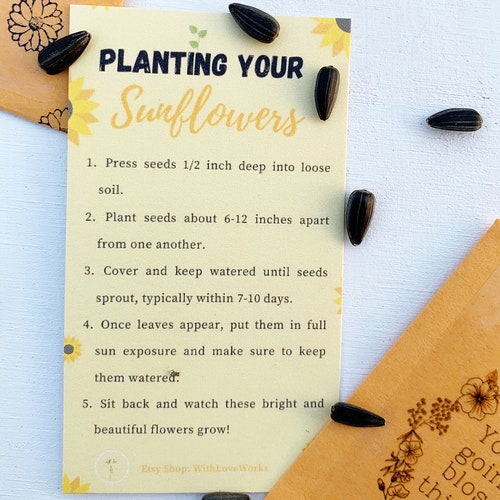 PLANTING YOUR
Sunflowers
1. Press seeds 1/2 inch deep into loose
soil.
2. Plant seeds about 6-12 inches apart
from one another.
3. Cover and keep watered until seeds
sprout, typically within 7-10 days.
4. Once leaves appear, put them in full
sun exposure and make sure to keep
them watered.
5. Sit back and watch these bright and
beautiful flowers grow!
Etsy Shop: WithLoveWorks